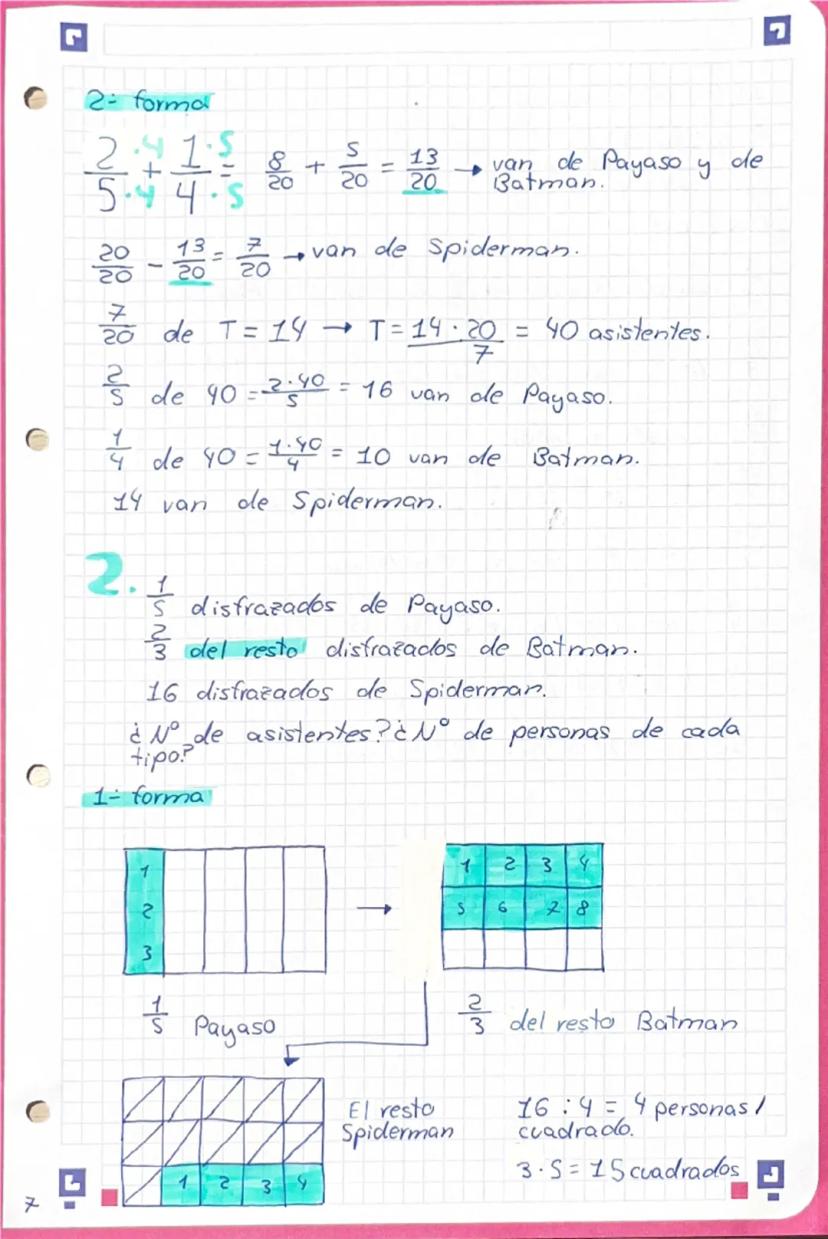 2ª forma
2·4/5·4 + 1·5/4·5 = 8/20 + 5/20 = 13/20 → van de Payaso y de Batman.
20/20 - 13/20 = 7/20 → van de Spiderman.
7/20 de T = 14 → T = 14·20/7 = 40 asistentes.
2/5 de 40 = 2·40/5 = 16 van de Payaso.
1/4 de 40 = 1·40/4 = 10 van de Batman.
14 van de Spiderman.
2. 1/5 disfrazados de Payaso.
2/3 del resto disfrazados de Batman.
16 disfrazados de Spiderman.
¿Nº de asistentes? ¿Nº de personas de cada
tipo?
1ª forma
1 1 2 3 4
2 5 6 7 8
3
1/5 Payaso
2/3 del resto Batman
El resto
Spiderman
16 : 4 = 4 personas/
cuadrado.
3·5 = 15 cuadrados
1 2 3 4
7